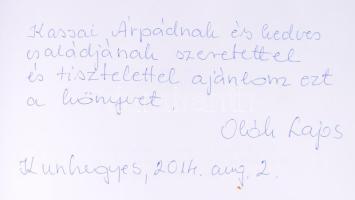 Kassai Árpádnak és kedves
családjának szeretettel
és tisztelettel ajánlom ezt
a könyvet.
Oláh Lajos
Kunhegyes, 2014. aug. 2.